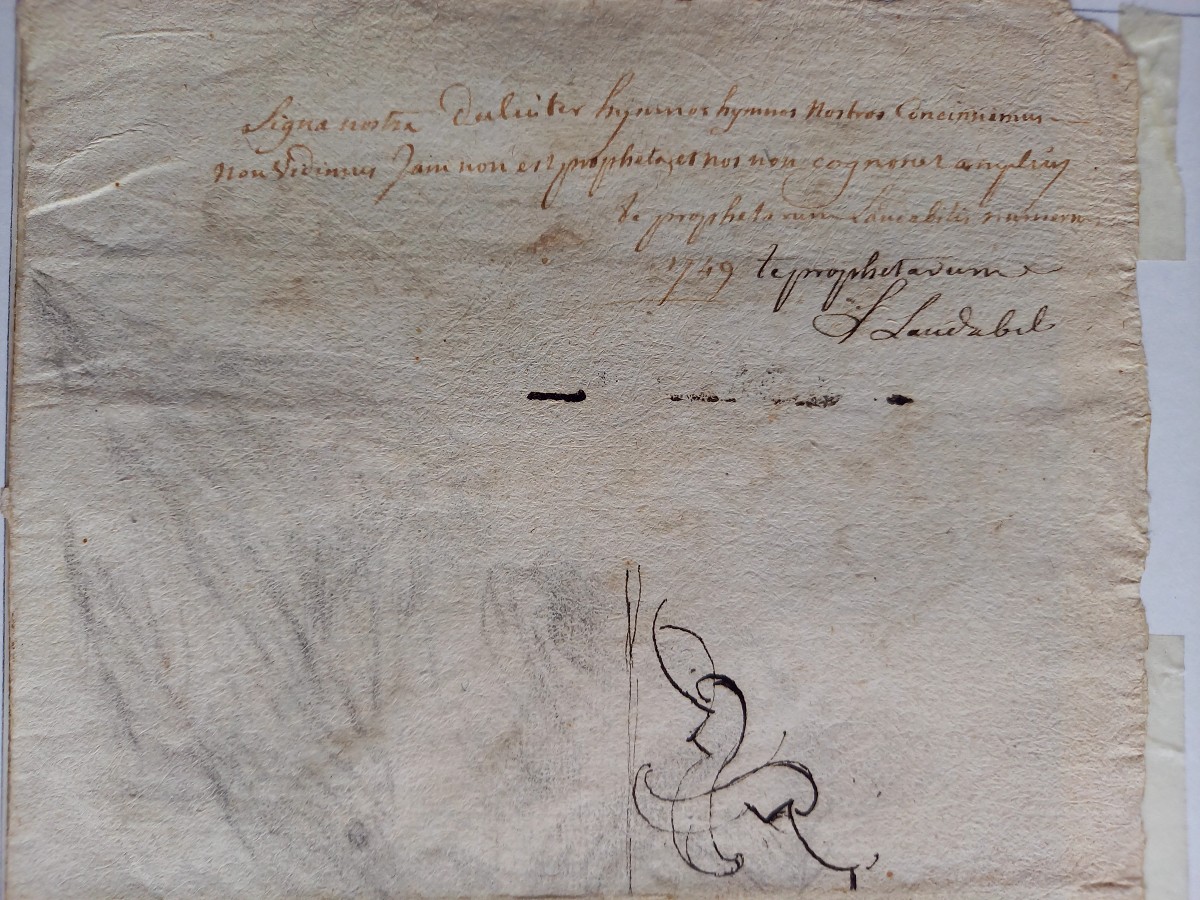 Signa nostra Dulciter hijmnos hymnos Nostros Concinnemus
non Vidimus Jam non est propheta, et nos non cognoscet amplius
te prophetarum Laudabilis numerus
1749 te prophetarum
Laudabil